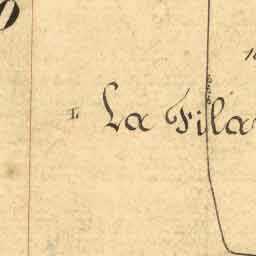 La Fila